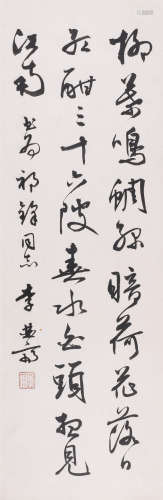 柳叶鸣蜩绿暗荷花落日
红酣三十六陂春水白头想见
江南 书为初锋同志 李